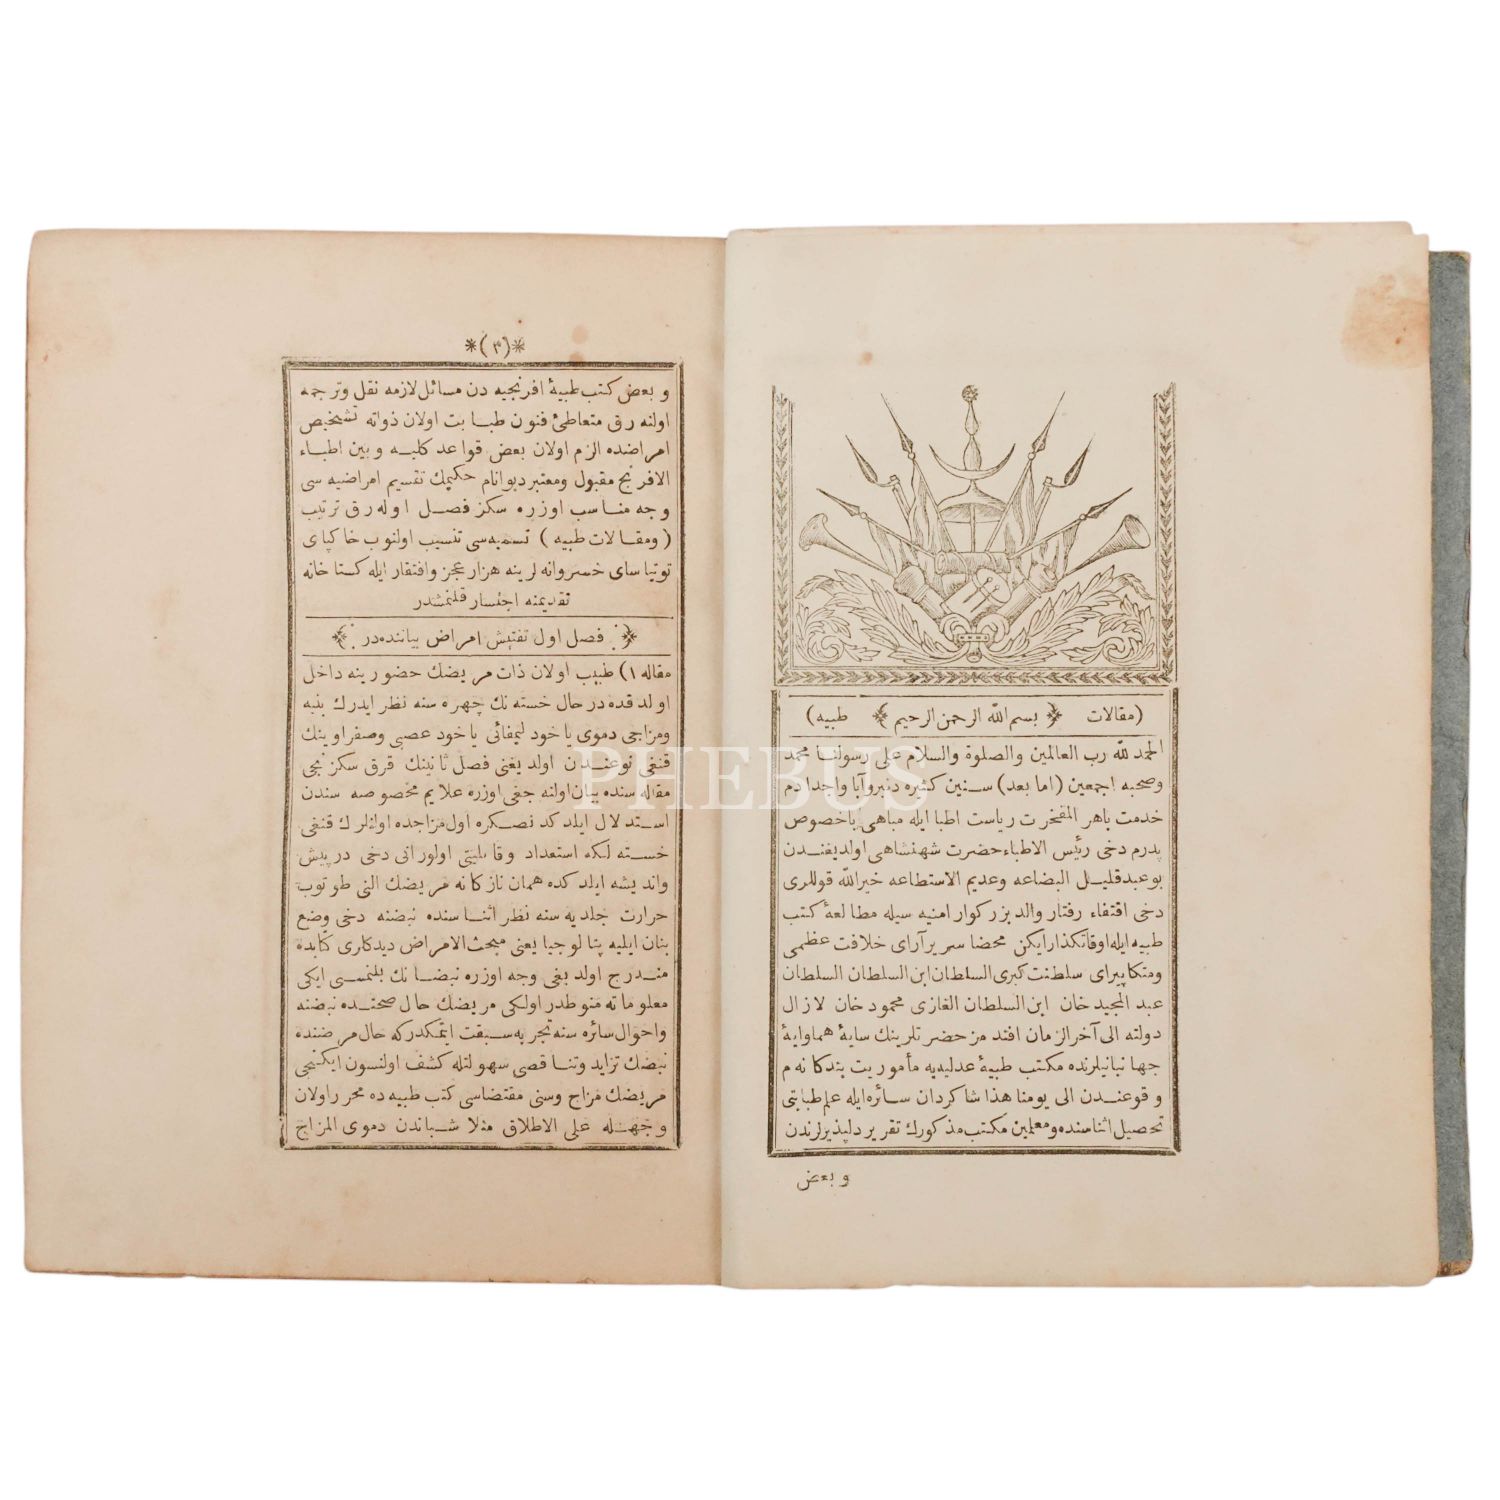 (مقالات ﴿ بسم الله الرحمن الرحيم ﴾ طبيه)
الحمد لله رب العالمين والصلوة والسلام على رسولنا محمد
وصحبه اجمعين (اما بعد) سنين كثيره دنبرو آبا واجدادم
خدمت باهر المفخرت رياست اطبا ايله مباهى باخصوص
پدرم دخى رئيس الاطباء حضرت شهنشاهى اولديغندن
بو عبد قليل البضاعه وعديم الاستطاعه خيرالله قوللرى
دخى اقتفاء رفتار والد بزركوار امنيه سيله مطالعۀ كتب
طبيه ايله اوقاتكذار ايكن محضا سرير آراى خلافت عظمى
ومتكاپيراى سلطنت كبرى السلطان ابن السلطان السلطان
عبد المجيد خان ابن السلطان الغازى محمود خان لازال
دولته الى آخر الزمان افندمز حضرتلرينك سايۀ همايۀ
جهانبانيلرنده مكتب طبيۀ عدليه يه مأموريت بندكانه م
وقوعندن الى يومنا هذا شاكردان سائره ايله علم طبابتى
تحصيل اثناسنده ومعلمين مكتب مذكورك تقرير دلپذيرلرندن
و بعض
*(٣)*
و بعض كتب طبيۀ افرنجيه دن مسائل لازمه نقل وترجمه
اولنه رق متعاطئ فنون طبابت اولان ذواته تشخيص
امراضده الزم اولان بعض قواعد كليه وبين اطباء
الافرنج مقبول ومعتبر ديوانام حكيمك تقسيم امراضيه سى
وجه مناسب اوزره سكز فصل اوله رق ترتيب
(ومقالات طبيه) تسميه سى تنسيب اولنوب خاكپاى
توتياساى خسروانه لرينه هزار عجز وافتقار ايله كستاخانه
تقديمنه اجتسار قلنمشدر
﴿ فصل اول تفتيش امراض بياننده در ﴾
مقاله ١) طبيب اولان ذات مريضك حضورينه داخل
اولدقده در حال خسته نك چهره سنه نظر ايدرك بنيه
ومزاجى دموى ياخود لنيفائى ياخود عصبى وصفراوينك
قنغى نوعندن اولديغنى فصل ثانينك قرق سكزنجى
مقاله سنده بيان اولنه جغى اوزره علايم مخصوصه سندن
استدلال ايلدكدنصكره اول مزاجده اولنلرك قنغى
خسته لكه استعداد وقابليتى اولورانى دخى درپيش
وانديشه ايلدكده همان نازكانه مريضك النى طوتوب
حرارت جلديه سنه نظر اثناسنده نبضنه دخى وضع
بنان ايليه پتالوجيا يعنى مبحث الامراض ديدكارى كتابده
مندرج اولديغى وجه اوزره نبضانك بلنمسى ايكى
معلوماته منوطدر اولكى مريضك حال صحتنده نبضنه
واحوال سائره سنه تجربه سبقت ايتمكدر كه حال مرضنده
نبضك تزايد وتناقصى سهولتله كشف اولنسون ايكنجى
مريضك مزاج وسنى مقتضاسى كتب طبيه ده محرر اولان
وجهله على الاطلاق مثلا شباندن دموى المزاج
PHEBUS